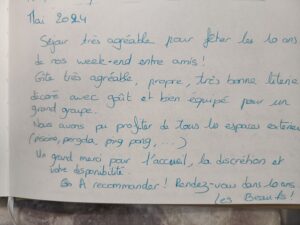 Mai 2024
Séjour très agréable pour fêter les 10 ans
de nos week-end entre amis!
Gîte très agréable, propre, très bonne literie
décoré avec goût et bien équipé pour un
grand groupe.
Nous avons pu profiter de tous les espaces extérieurs
(piscine, pergola, ping pong, ...)
Un grand merci pour l'accueil, la discrétion et
votre disponibilité.
A recommander! Rendez-vous dans 10 ans
les